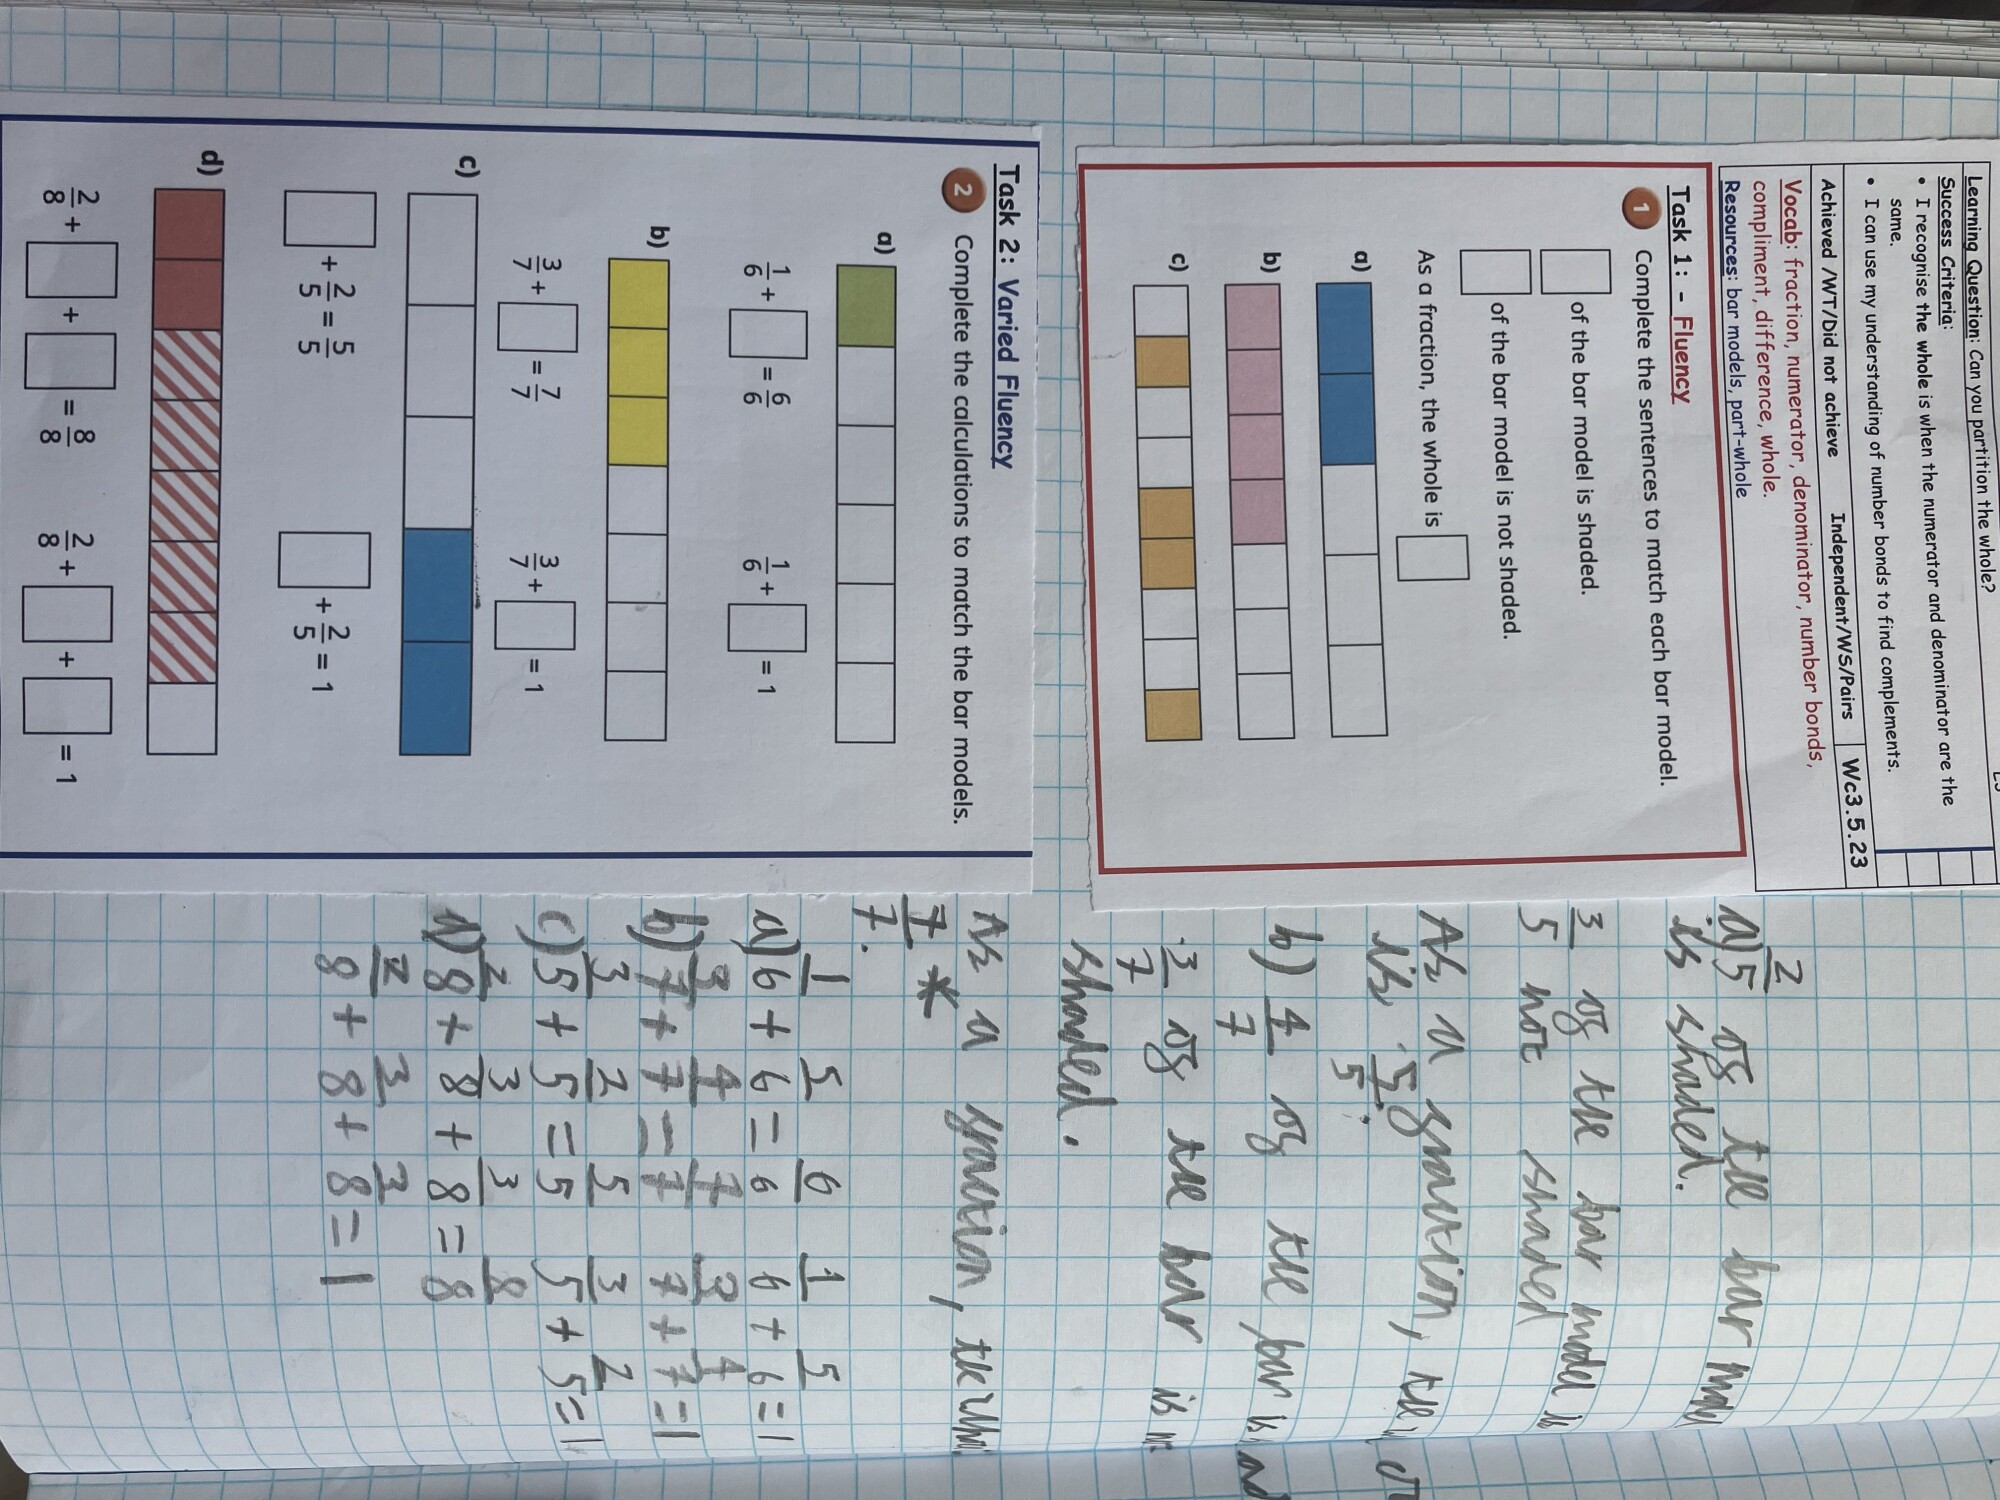 Learning Question: Can you partition the whole?
Success Criteria:
• I recognise the whole is when the numerator and denominator are the
same.
• I can use my understanding of number bonds to find complements.
Achieved /WT/Did not achieve Independent/WS/Pairs Wc3.5.23
Vocab: fraction, numerator, denominator, number bonds,
compliment, difference, whole.
Resources: bar models, part-whole
Task 1: - Fluency
1 Complete the sentences to match each bar model.
of the bar model is shaded.
of the bar model is not shaded.
As a fraction, the whole is
a)
b)
c)
Task 2: Varied Fluency
2 Complete the calculations to match the bar models.
a)
1/6 + = 6/6 1/6 + = 1
b)
3/7 + = 7/7 3/7 + = 1
c)
+ 2/5 = 5/5 + 2/5 = 1
d)
2/8 + + = 8/8 2/8 + + = 1
a) 2/5 of the bar
is shaded.
3/5 of the bar model is
not shaded
As a fraction, the
is 5/5.
b) 4/7 of the bar is
3/7 of the bar is
shaded.
As a fraction, the
7/7 *
7.
a) 1/6 + 5/6 = 6/6 1/6 + 5/6 = 1
b) 3/7 + 4/7 = 7/7 3/7 + 4/7 = 1
c) 3/5 + 2/5 = 5/5 3/5 + 2/5 = 1
d) 2/8 + 3/8 + 3/8 = 8/8
2/8 + 3/8 + 3/8 = 1